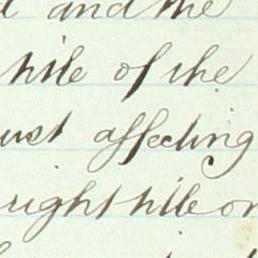 and the
hile of the
ust affecting
ught hile or